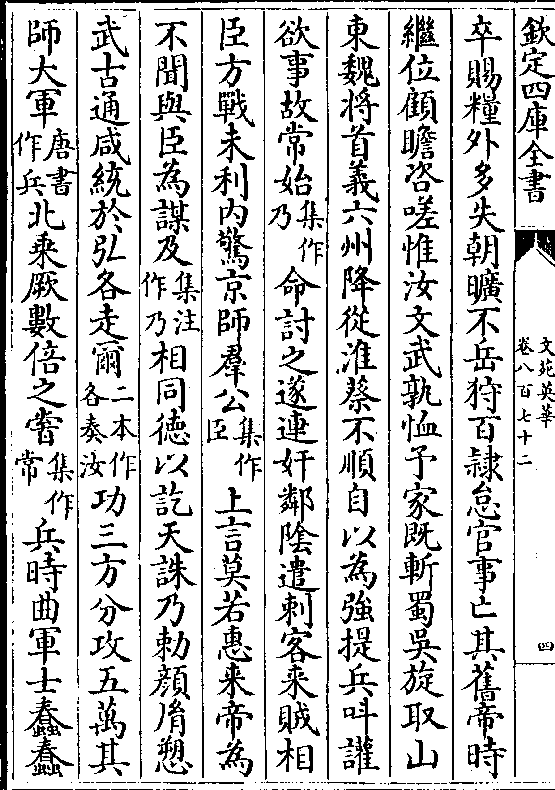 欽定四庫全書
文苑英華
卷八百七十二
四
卒賜糧外多失朝曠不岳狩百隸怠官事亡其舊帝時
繼位顧瞻咨嗟惟汝文武孰恤予家既斬蜀吳旋取山
東魏将首義六州降從淮蔡不順自以為強提兵叫讙
欲事故常始集作乃命討之遂連奸鄰陰遣刺客来賊相
臣方戰未利内驚京師羣公集作臣上言莫若惠来帝為
不聞與臣為謀及集注作乃相同徳以訖天誅乃勅顔胤愬
武古通咸統於弘各走爾二本作各奏汝功三方分攻五萬其
師大軍唐書作兵北乘厥數倍之甞集作常兵時曲軍士蠢蠢